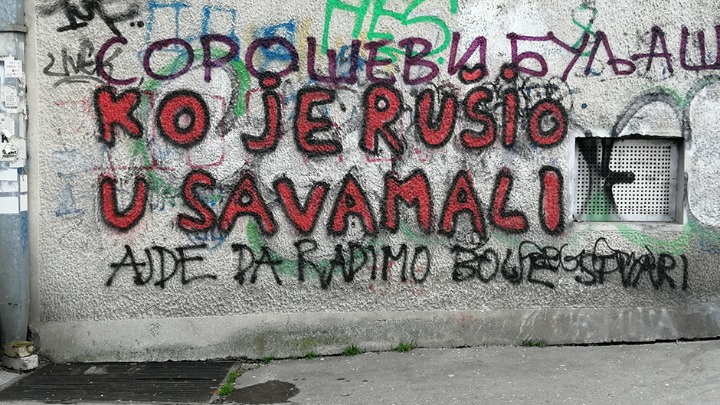 СОРОШЕВИ БУЉАШ
KO JE RUŠIO
U SAVAMALI
AJDE DA RADIMO BOLJE STVARI